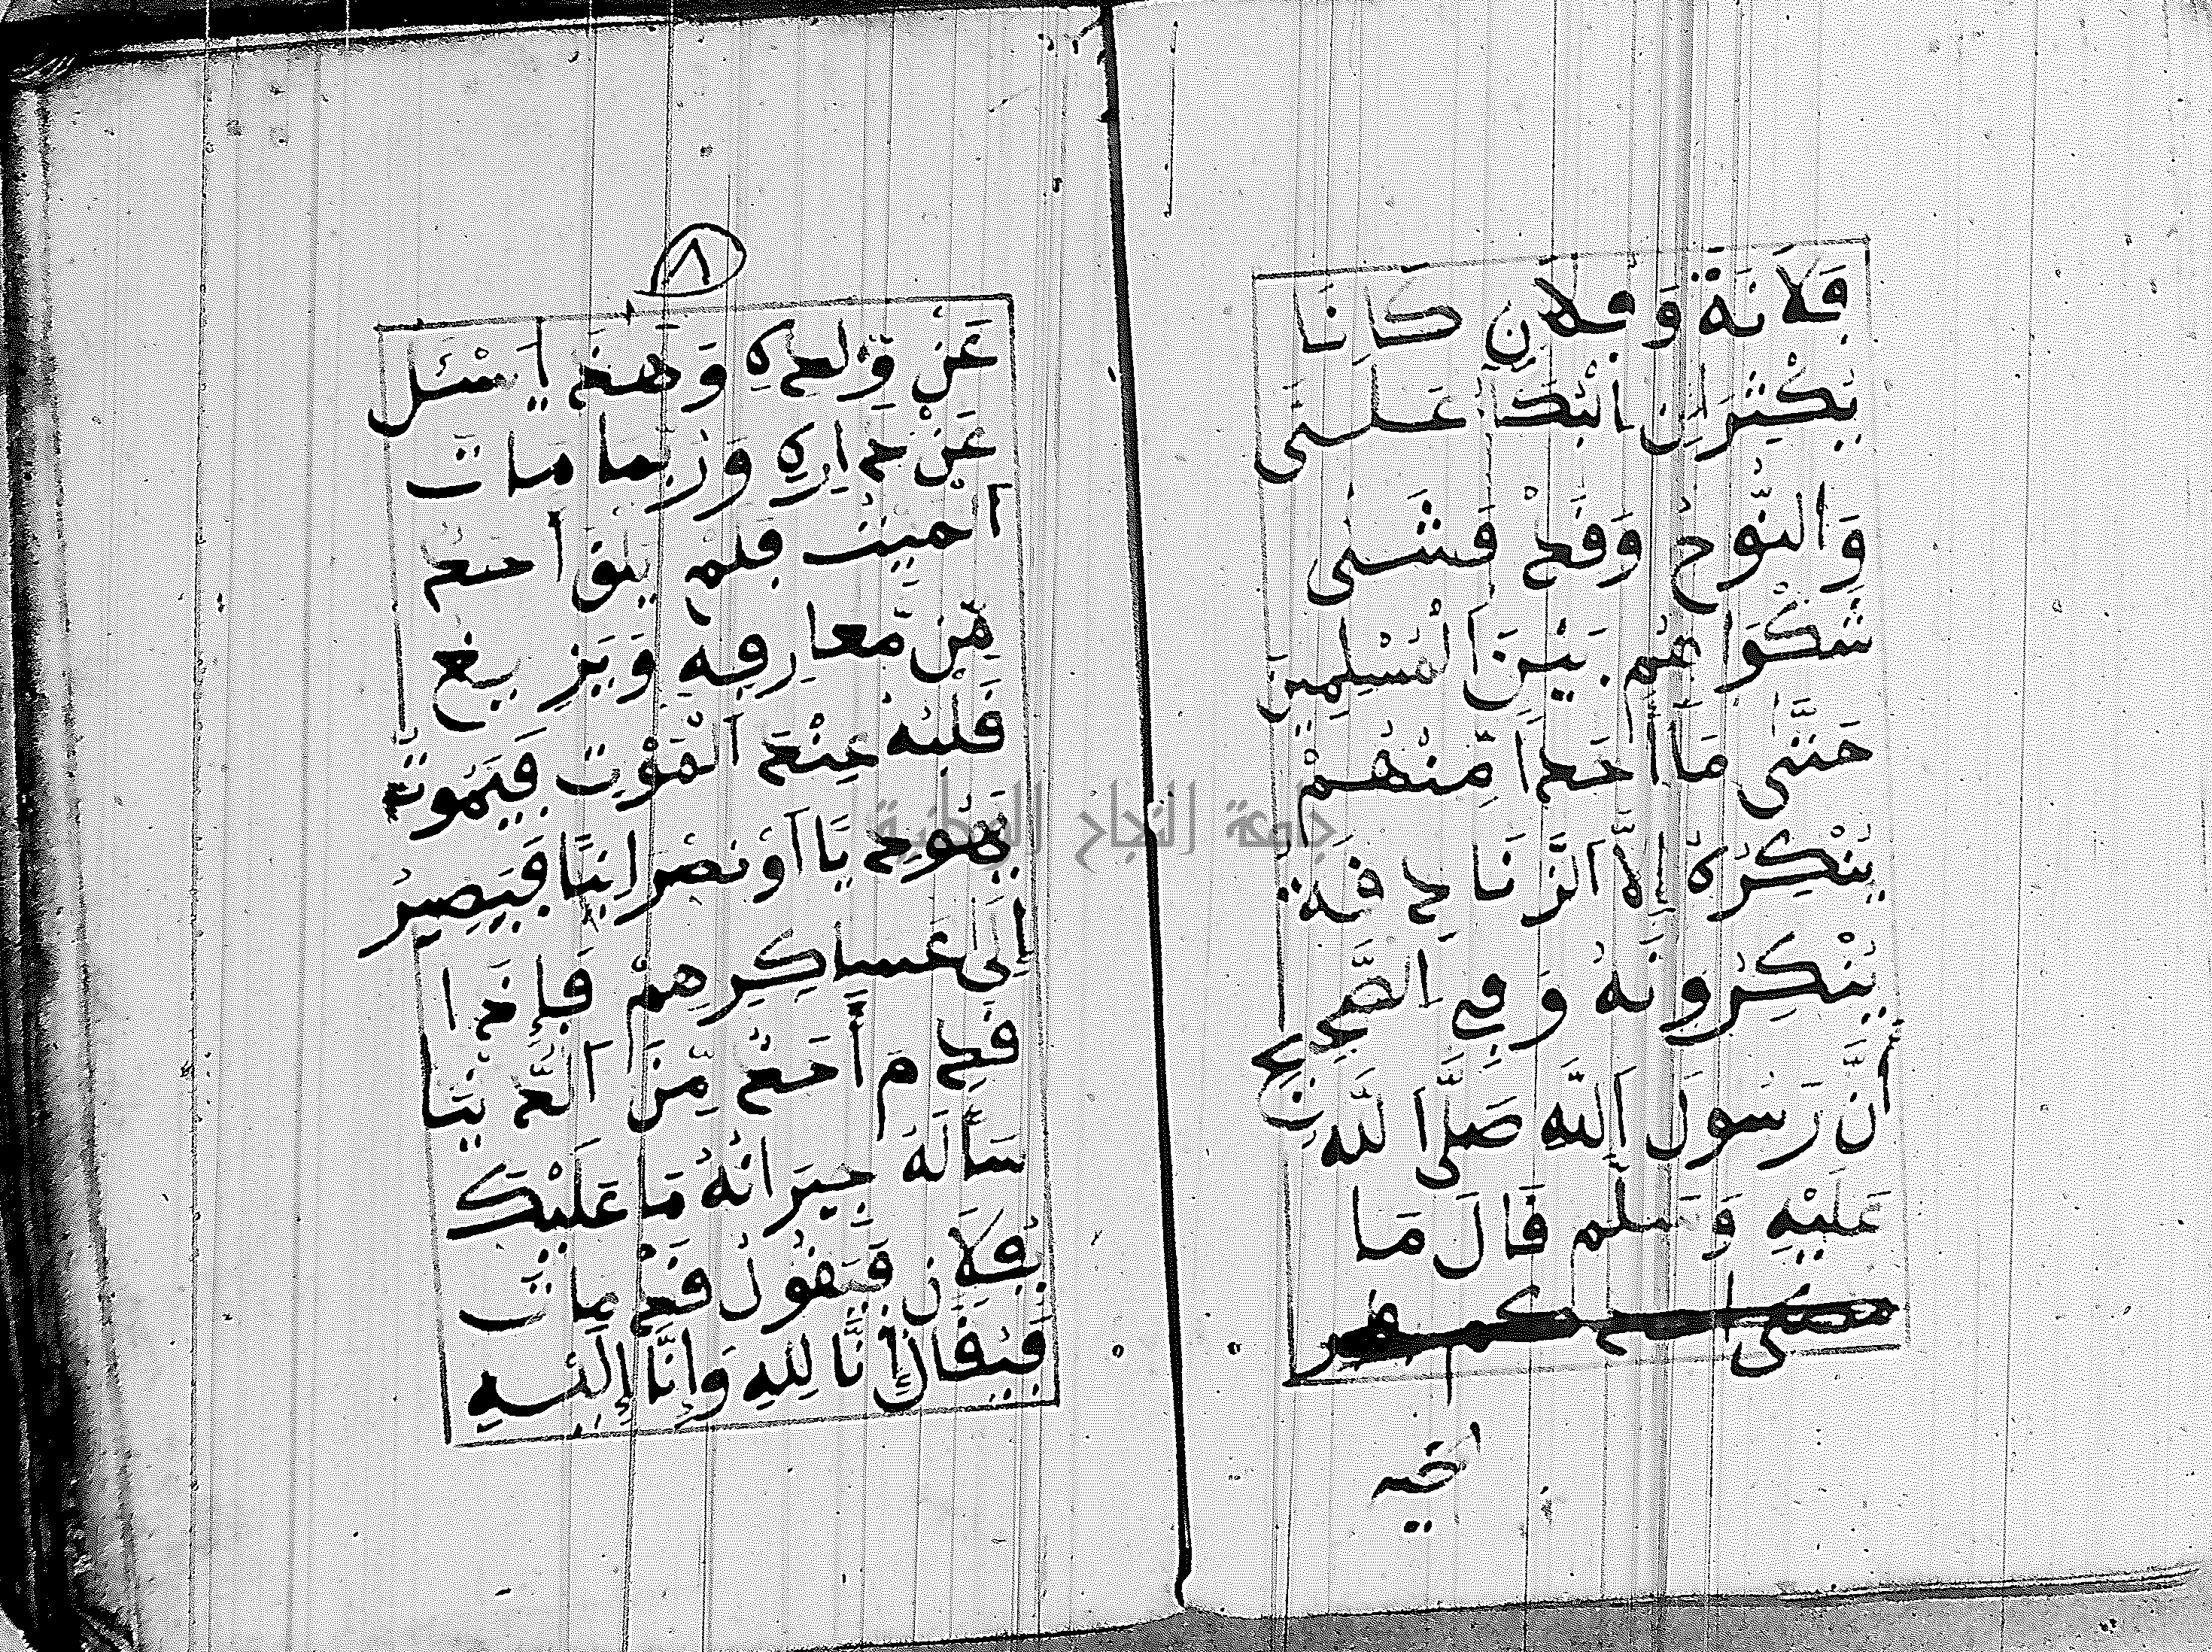 فُلَانَةٌ وَفُلَانٍ كَانَا
يُكْثِرَانِ الْبُكَاءَ عَلَيَّ
وَالنَّوْحُ وَقَدْ فَشَى
شَكْوَاهُم بَيْنَ الْمُسْلِمِينَ
حَتَّى مَا أَحَدًا مِّنْهُمْ
يُنْكِرُهُ إِلَّا الزَّنَادِقَةُ
يُنْكِرُونَهُ وَفِي الصَّحِيحِ
أَنَّ رَسُولَ اللهِ صَلَّى اللهُ
عَلَيْهِ وَسَلَّم قَالَ مَا
٨
عَنْ وَّلَدِهِ وَهَذَا يَسْئَلُ
عَنْ جَارِهِ وَرُبَّمَا مَاتَ
الْمَيِّتُ فَلَمْ يَلْقَ أَحَدٌ
مِّنْ مَّعَارِفِهِ وَيَزِيغُ
قَلْبُهُ عِنْدَ الْمَوْتِ فَيَمُوتُ
يَهُودِيًّا أَوْ نَصْرَانِيًّا فَيَصِيرُ
إِلَى عَسَاكِرِهِمْ فَإِذَا
قَدِمَ أَحَدٌ مِّنَ الدُّنْيَا
سَأَلَهُ جِيرَانُهُ مَا عَلَيْكَ
بِفُلَانٍ فَيَقُولُ قَدْ مَاتَ
فَيُقَالُ إِنَّا لِلهِ وَإِنَّا إِلَيْهِ
جامعة النجاح الوطنية